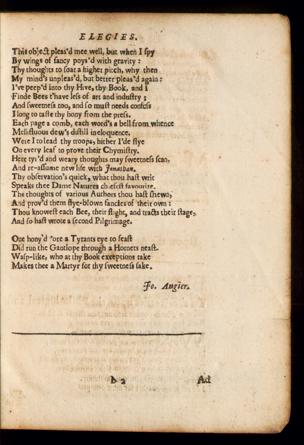 ELEGIES.
This object pleas'd mee well, but when I spy
By wings of fancy poys'd with gravity :
Thy thoughts to soar a higher pitch, why then
My mind's unpleas'd, but better pleas'd again :
I've peep'd into thy Hive, thy Book, and I
Finde Bees t'have less of art and industry ;
And sweetness too, and so must needs confess
I long to taste thy hony from the press.
Each page a comb, each word's a bell from whence
Mellifluous dew's distill in eloquence.
Were I to lead thy troops, hither I'de flye
On every leaf to prove their Chymistry.
Here tyr'd and weary thoughts may sweetness scan,
And re-assume new life with Jonathan.
Thy observation's quick, what thou hast writ
Speaks thee Dame Natures chiefest favourite.
The thoughts of various Authors thou hast shewn,
And prov'd them flye-blown fancies of their own :
Thou knowest each Bee, their flight, and tracts their stage,
And so hast wrote a second Pilgrimage.
One hony'd 'ore a Tyrants eye to feast
Did run the Gantlope through a Hornets neast.
Wasp-like, who at thy Book exceptions take
Makes thee a Martyr for thy sweetness sake.
Jo. Augier.
b 2
Ad